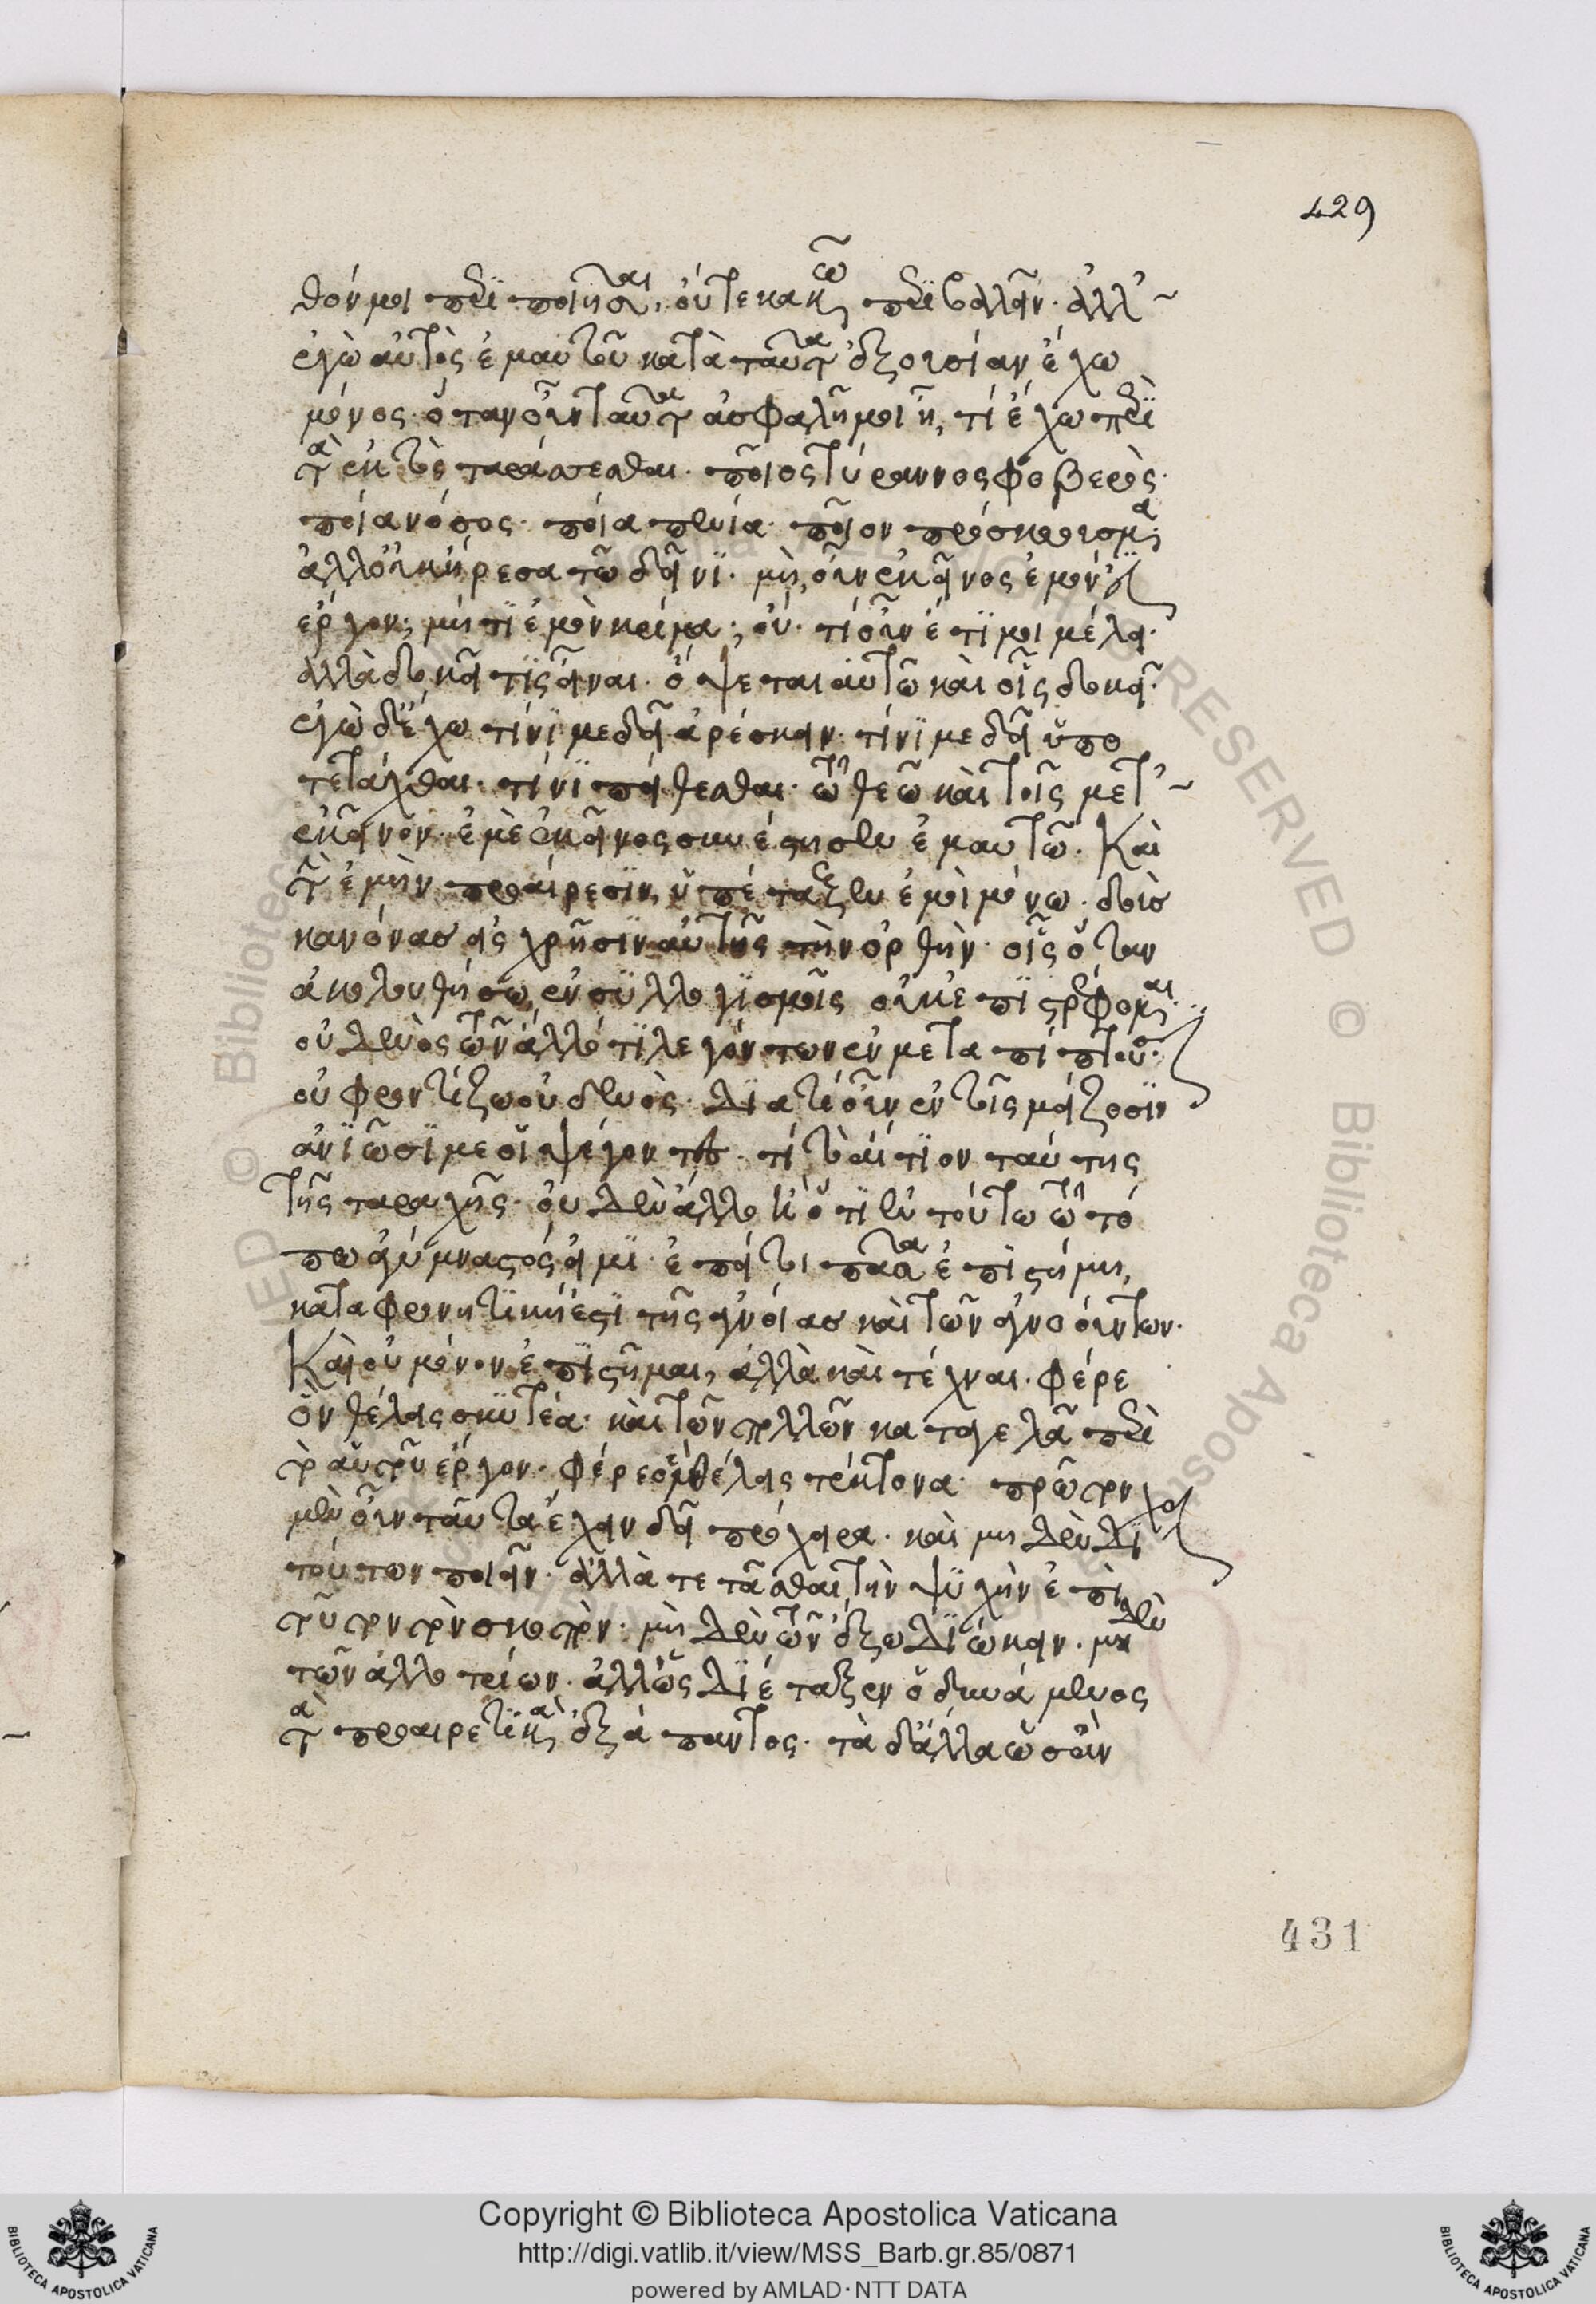 429
θόν μοι περιποιῆσαι, οὔτε κακῶ περιβαλεῖν. ἀλλ'
ἐγὼ αὐτὸς ἐμαυτοῦ κατὰ ταῦτα ἐξουσίαν ἔχω
μόνος. ὅταν οὖν ταῦτα ἀσφαλῆ μοι ᾖ, τί ἔχω περὶ
τὰ ἐκτὸς ταράσσεσθαι. ποῖος τύραννος φοβερὸς.
ποία νόσος. ποία πενία. ποῖον πρόσκρουσμα;
ἀλλ' οὐκ ἤρεσα τῶ δεῖνι. μὴ οὖν ἐκεῖνος ἐμόν ἐστι
ἔργον; μή τι ἐμὸν κρίμα; οὔ. τί οὖν ἔτι μοι μέλει.
ἀλλὰ δοκεῖ τὶς εἶναι. ὄψεται αὐτῶ καὶ οἷς δοκεῖ.
ἐγὼ δ' ἔχω τίνι με δεῖ ἀρέσκειν. τίνι με δεῖ ὑπο
τετάχθαι. τίνι πείθεσθαι. τῶ θεῶ καὶ τοῖς μετ'
ἐκεῖνον. ἐμὲ ἐκεῖνος συνέστησεν ἐμαυτῶ. Καὶ
τὴν ἐμὴν προαίρεσιν, ὑπέταξεν ἐμοὶ μόνω. δοὺσ
κανόνασ εἰς χρῆσιν αὐτῆς τὴν ὀρθὴν. οἷς ὅταν
ἀκολουθήσω, ἐν συλλογισμοῖς οὐκ ἐπιστρέφομαι
οὐδενὸς τῶν ἄλλό τι λεγόντων. ἐν μεταπίπτουσι.
οὐ φροντίζω οὐδενὸς. διατί οὖν ἐν τοῖς μείζοσιν
ἀνιῶσί με οἱ ψέγοντες. τί τὸ αἴτιον ταύτης
τῆς ταραχῆς. οὐδὲν ἄλλο ἢ ὅτι ἐν τούτω τῶ τό
πω ἀγύμναστός εἰμι. ἐπεί τοι πᾶσα ἐπιστήμη,
καταφρονητική ἐστι τῆς ἀγνοίασ καὶ τῶν ἀγνοούντων.
Καὶ οὐ μόνον ἐπιστῆμαι, ἀλλὰ καὶ τέχναι. φέρε
ὃν θέλεις σκυτέα. καὶ τῶν πολλῶν καταγελᾶ περὶ
τὸ αὑτοῦ ἔργον. φέρε ὃν θέλεις τέκτονα. πρῶτον
μὲν οὖν ταῦτα ἔχειν δεῖ πρόχειρα. καὶ μηδὲν δίχα
τούτων ποιεῖν. ἀλλὰ τετάσθαι τὴν ψυχὴν ἐπὶ
τοῦτον τὸν σκοπὸν. μηδὲν τῶν ἔξω διώκειν. μηδὲν
τῶν ἀλλοτρίων. ἀλλ' ὡς διέταξεν ὁ δυνάμενος
τὰ προαιρετικὰ ἐξάπαντος. τὰ δ' ἄλλα ὡς ἂν
431
Copyright © Biblioteca Apostolica Vaticana
http://digi.vatlib.it/view/MSS_Barb.gr.85/0871
powered by AMLAD·NTT DATA